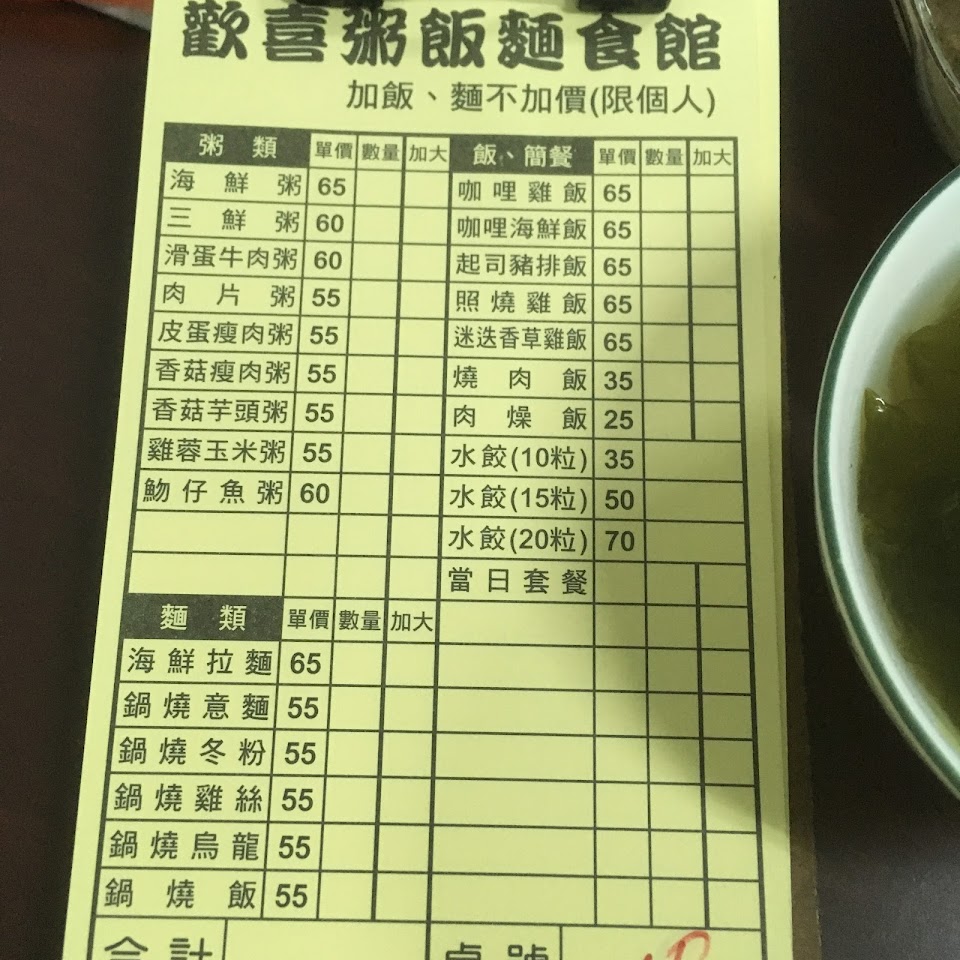 歡喜粥飯麵食館
加飯、麵不加價(限個人)
粥類 單價 數量 加大
海鮮粥 65
三鮮粥 60
滑蛋牛肉粥 60
肉片粥 55
皮蛋瘦肉粥 55
香菇瘦肉粥 55
香菇芋頭粥 55
雞蓉玉米粥 55
魩仔魚粥 60
麵類 單價 數量 加大
海鮮拉麵 65
鍋燒意麵 55
鍋燒冬粉 55
鍋燒雞絲 55
鍋燒烏龍 55
鍋燒飯 55
飯、簡餐 單價 數量 加大
咖哩雞飯 65
咖哩海鮮飯 65
起司豬排飯 65
照燒雞飯 65
迷迭香草雞飯 65
燒肉飯 35
肉燥飯 25
水餃(10粒) 35
水餃(15粒) 50
水餃(20粒) 70
當日套餐
合計 桌號